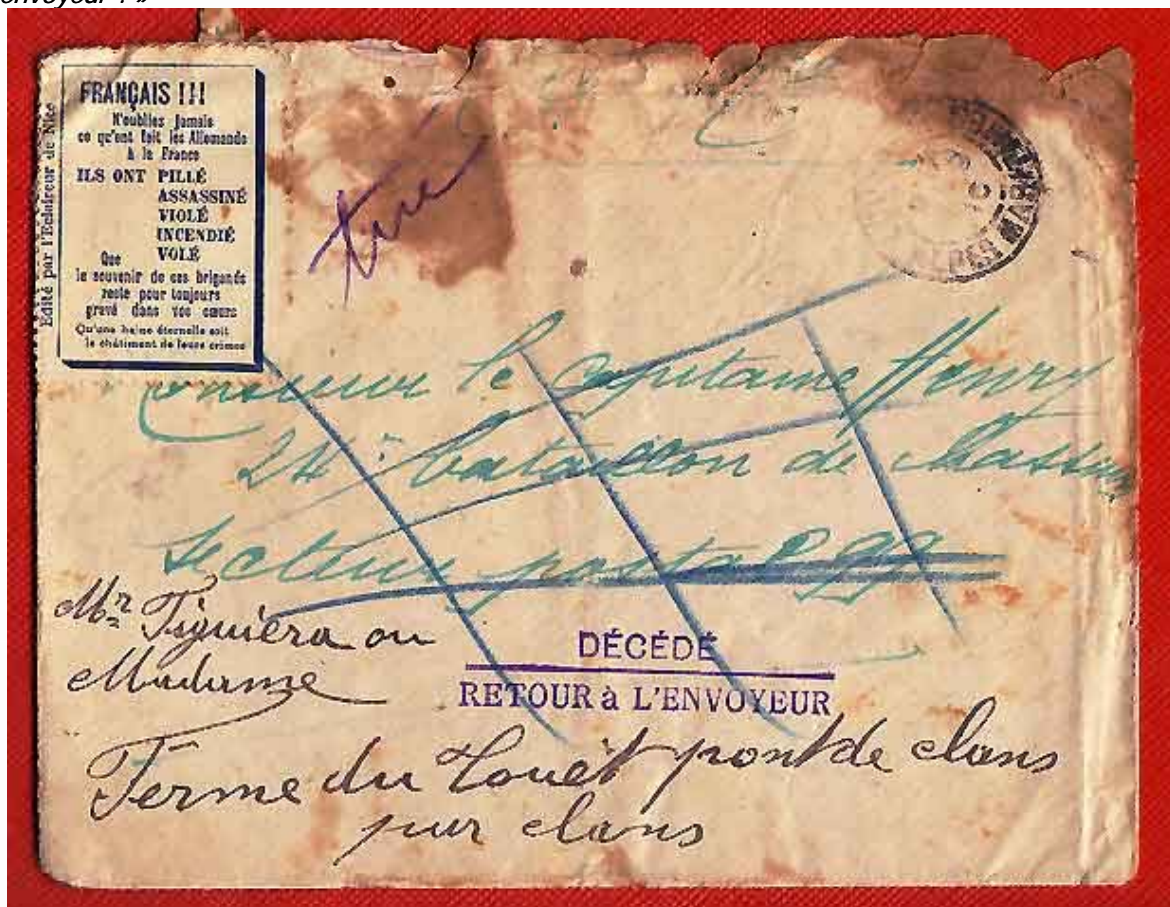 envoyeur ! »
Edité par l'Eclaireur de Nice
FRANÇAIS !!!
N'oubliez jamais
ce qu'ont fait les Allemands
à la France
ILS ONT PILLÉ
ASSASSINÉ
VIOLÉ
INCENDIÉ
VOLÉ
Que
le souvenir de ces brigands
reste pour toujours
gravé dans vos cœurs
Qu'une haine éternelle soit
le châtiment de leurs crimes
tué
ALPES MARITIMES
Monsieur le Capitaine Henry
24e bataillon de Chasseurs
Secteur postal 99
Mr Figuiéra ou
Madame
DÉCÉDÉ
RETOUR à L'ENVOYEUR
Ferme du Touët pont de clans
par clans